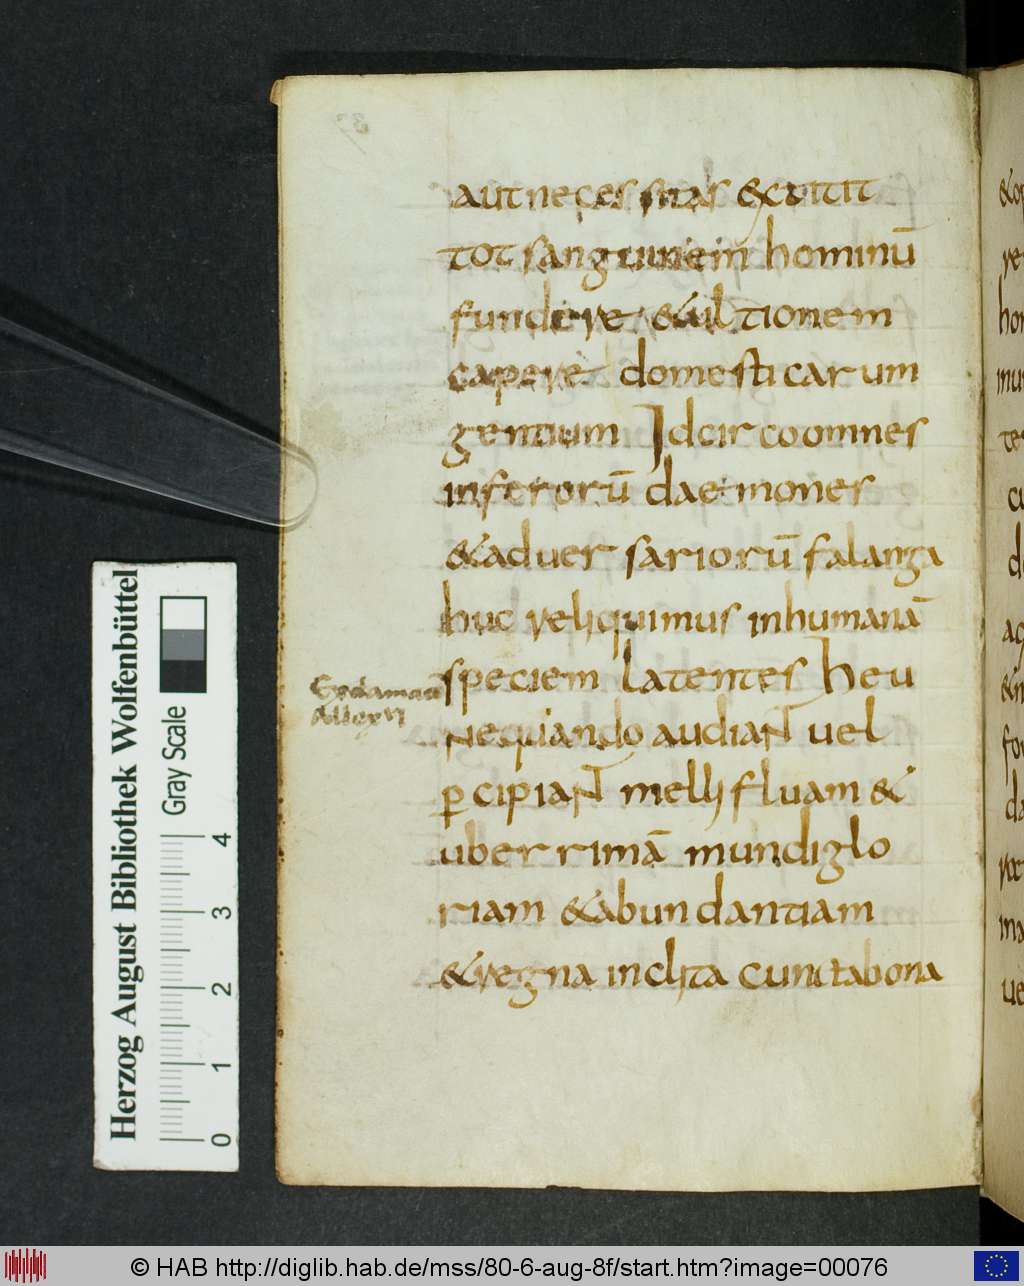 aut necessitas excitit
tot sanguinem hominū
fundere & ultionem
capere domesticarum
gentium Idcirco omnes
inferorū daemones
& aduersariorū falanga
huc reliquimus inhumanā
speciem latentes heu
nequando audiaNt uel
ꝑcipiaNt mellifluam &
uberrimā mundi glo
riam & abundantiam
& regna inclita cuncta bona
Herzog August Bibliothek Wolfenbüttel
Gray Scale
0 1 2 3 4
© HAB http://diglib.hab.de/mss/80-6-aug-8f/start.htm?image=00076